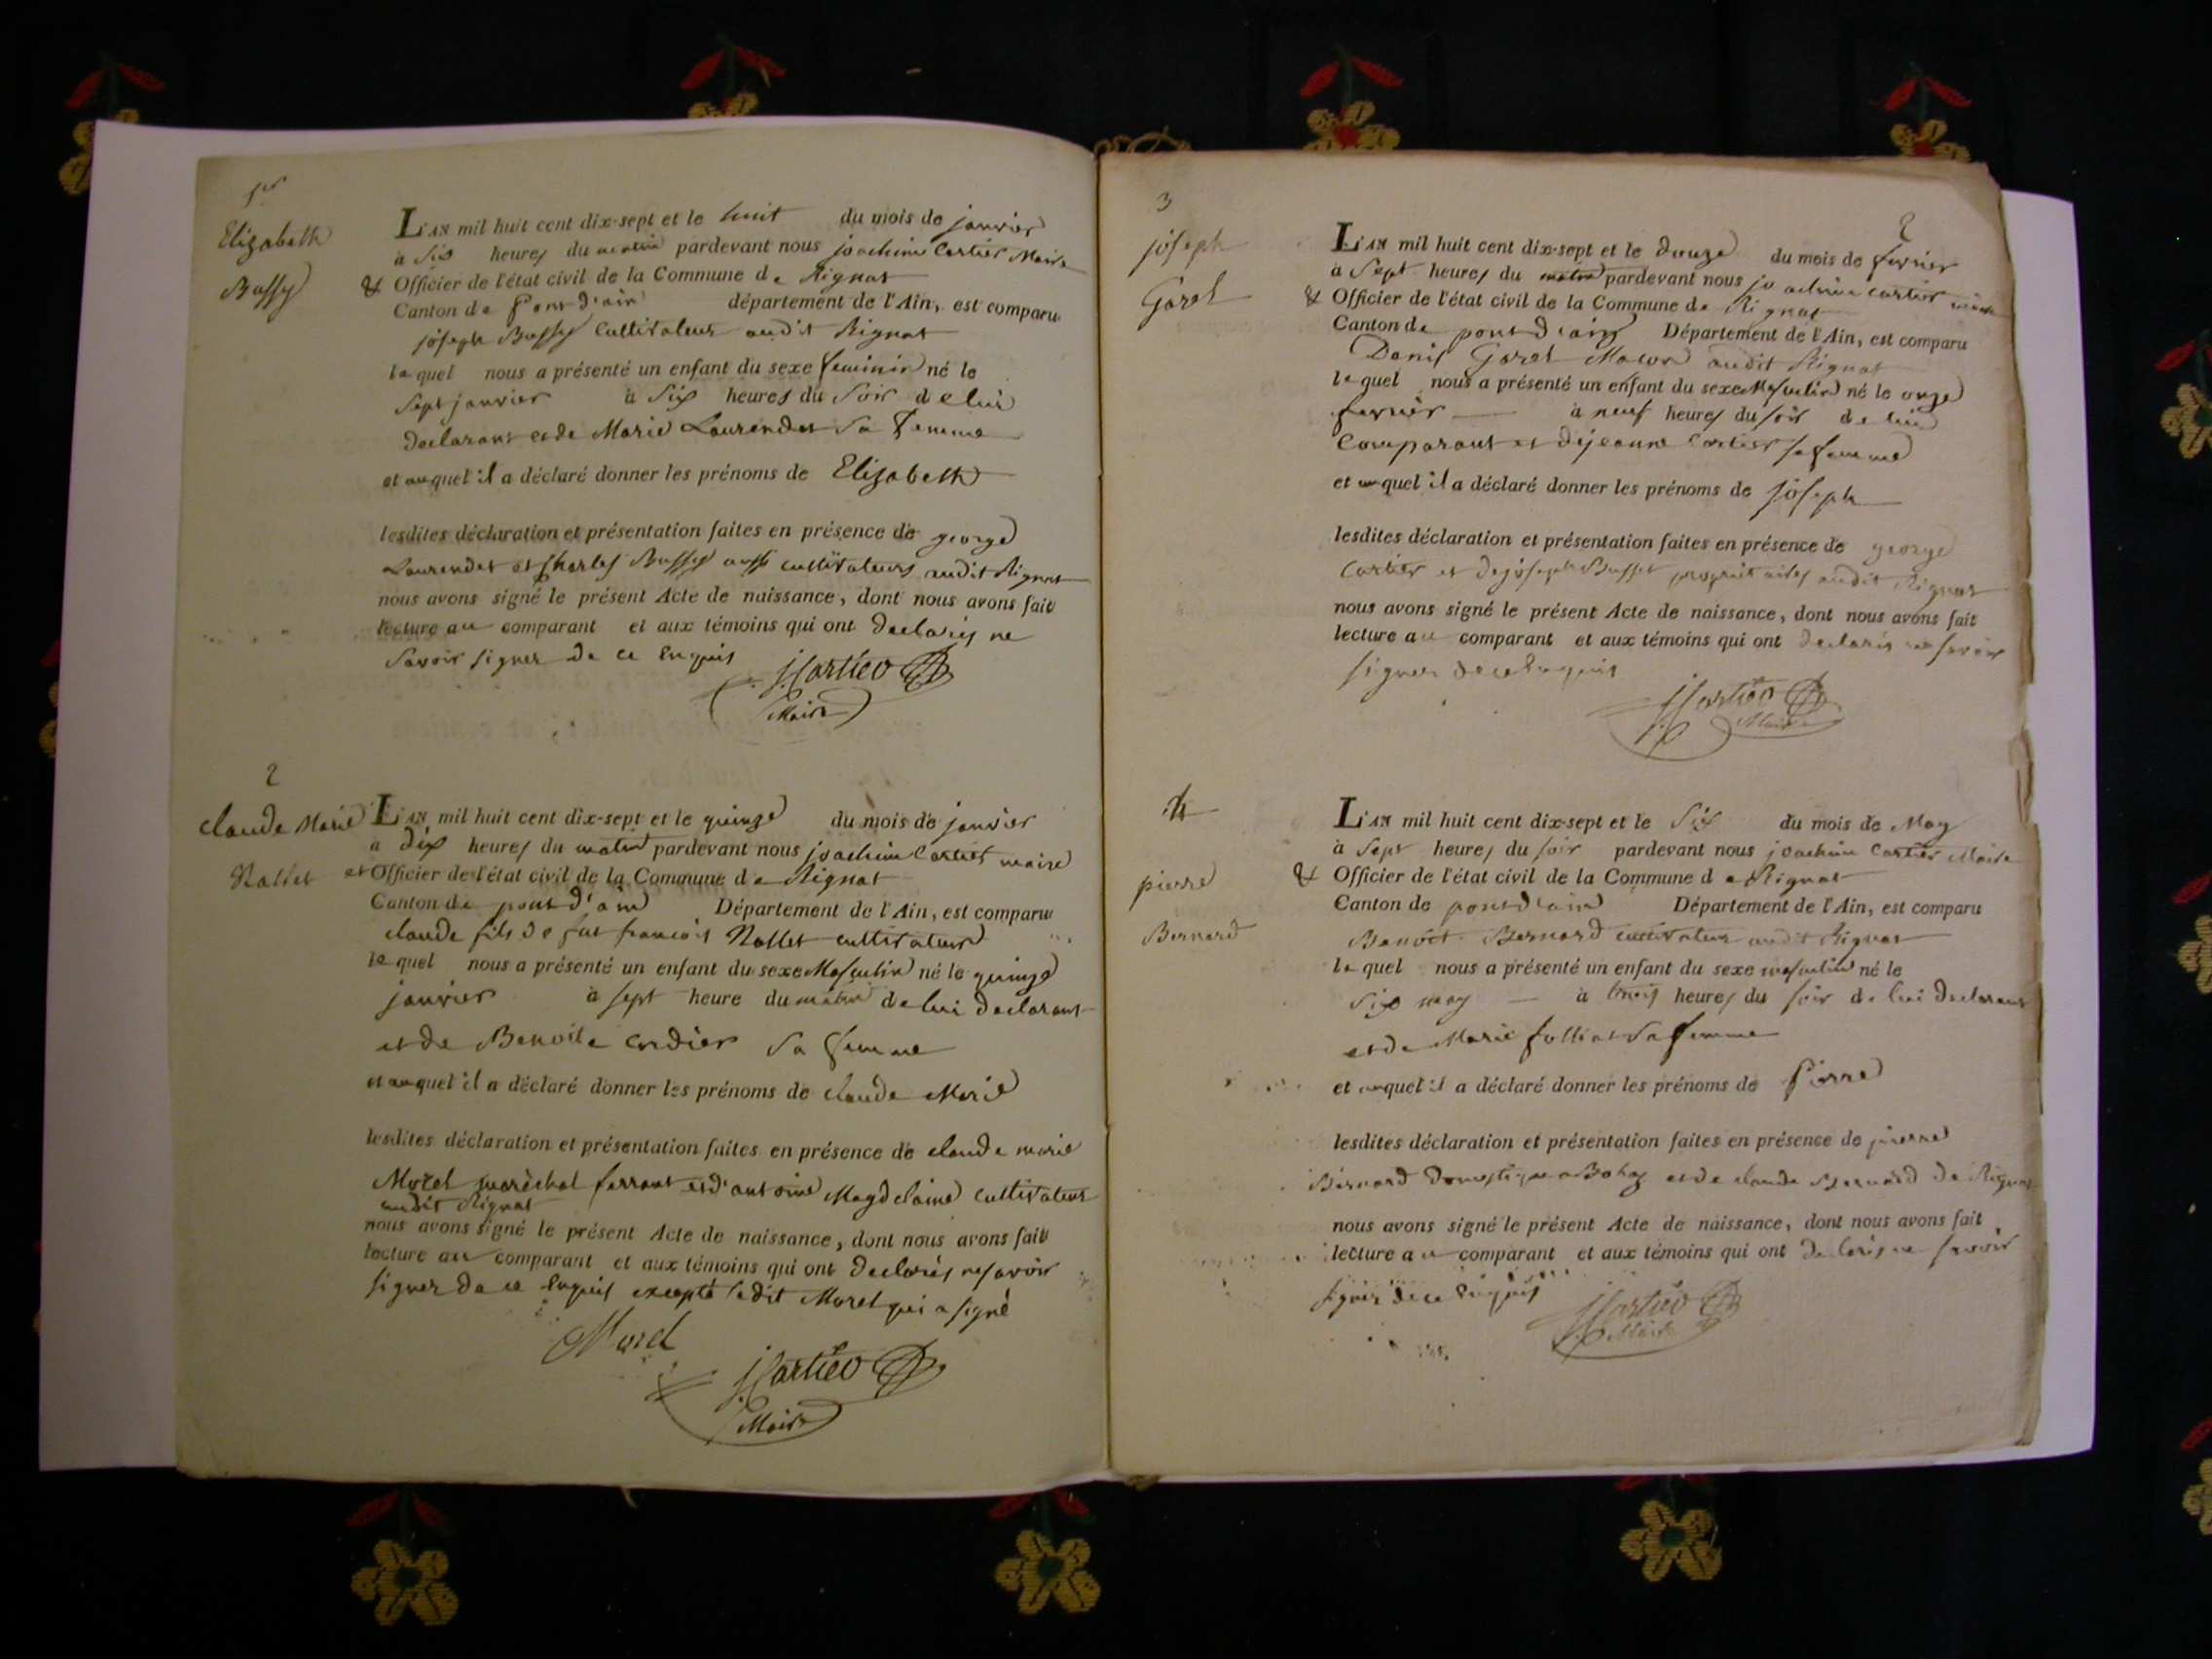 1er
Elizabeth
Bussy
L'AN mil huit cent dix-sept et le huit du mois de janvier
à Six heures du matin pardevant nous joachim Cartier Maire
& Officier de l'état civil de la Commune de Rignat
Canton de Pont d'ain département de l'Ain, est comparu
joseph Bussy Cultivateur audit Rignat
lequel nous a présenté un enfant du sexe feminin né le
Sept janvier à Six heures du Soir de lui
declarant et de Marie Laurendet Sa femme
et auquel il a déclaré donner les prénoms de Elizabeth
lesdites déclaration et présentation faites en présence de george
Laurendet et Charles Bussy aussi cultivateurs audit Rignat
nous avons signé le présent Acte de naissance, dont nous avons fait
lecture au comparant et aux témoins qui ont declarés ne
Savoir signer de ce Enquis
JCartier
Maire
2
claude Marie
Nallet
L'AN mil huit cent dix-sept et le quinze du mois de janvier
à dix heures du matin pardevant nous joachim Cartier maire
et Officier de l'état civil de la Commune de Rignat
Canton de pont d'ain Département de l'Ain, est comparu
claude fils de fut francois Nallet cultivateur
lequel nous a présenté un enfant du sexe Masculin né le quinze
janvier à sept heure du matin de lui declarant
et de Benoite Cordier Sa femme
et auquel il a déclaré donner les prénoms de claude Marie
lesdites déclaration et présentation faites en présence de claude marie
Morel maréchal ferrant et d'antoine Magdelaine Cultivateur
audit Rignat
nous avons signé le présent Acte de naissance, dont nous avons fait
lecture au comparant et aux témoins qui ont declarés ne savoir
signer de ce Enquis excepté ledit Morel qui a signé
Morel
JCartier
Maire
3
joseph
Garel
2
L'AN mil huit cent dix-sept et le douze du mois de fevrier
à Sept heures du matin pardevant nous joachim cartier maire
& Officier de l'état civil de la Commune de Rignat
Canton de pont d'ain Département de l'Ain, est comparu
Denis Garel Macon audit Rignat
lequel nous a présenté un enfant du sexe Masculin né le onze
fevrier à neuf heures du soir de lui
Comparant et de jeanne Cartier sa femme
et auquel il a déclaré donner les prénoms de joseph
lesdites déclaration et présentation faites en présence de george
Cartier et de joseph Busset propriétaires audit Rignat
nous avons signé le présent Acte de naissance, dont nous avons fait
lecture au comparant et aux témoins qui ont declarés ne savoir
signer de ce Enquis
JCartier
Maire
4
pierre
Bernard
L'AN mil huit cent dix-sept et le Six du mois de May
à Sept heures du soir pardevant nous joachim Cartier Maire
& Officier de l'état civil de la Commune de Rignat
Canton de pont d'ain Département de l'Ain, est comparu
Benoit Bernard cultivateur audit Rignat
lequel nous a présenté un enfant du sexe masculin né le
Six may à trois heures du soir de lui declarant
et de Marie folliat Sa femme
et auquel il a déclaré donner les prénoms de Pierre
lesdites déclaration et présentation faites en présence de pierre
Bernard Domestique a Bohas et de claude Bernard de Rignat
nous avons signé le présent Acte de naissance, dont nous avons fait
lecture au comparant et aux témoins qui ont declarés ne savoir
signer de ce Enquis
JCartier
Maire